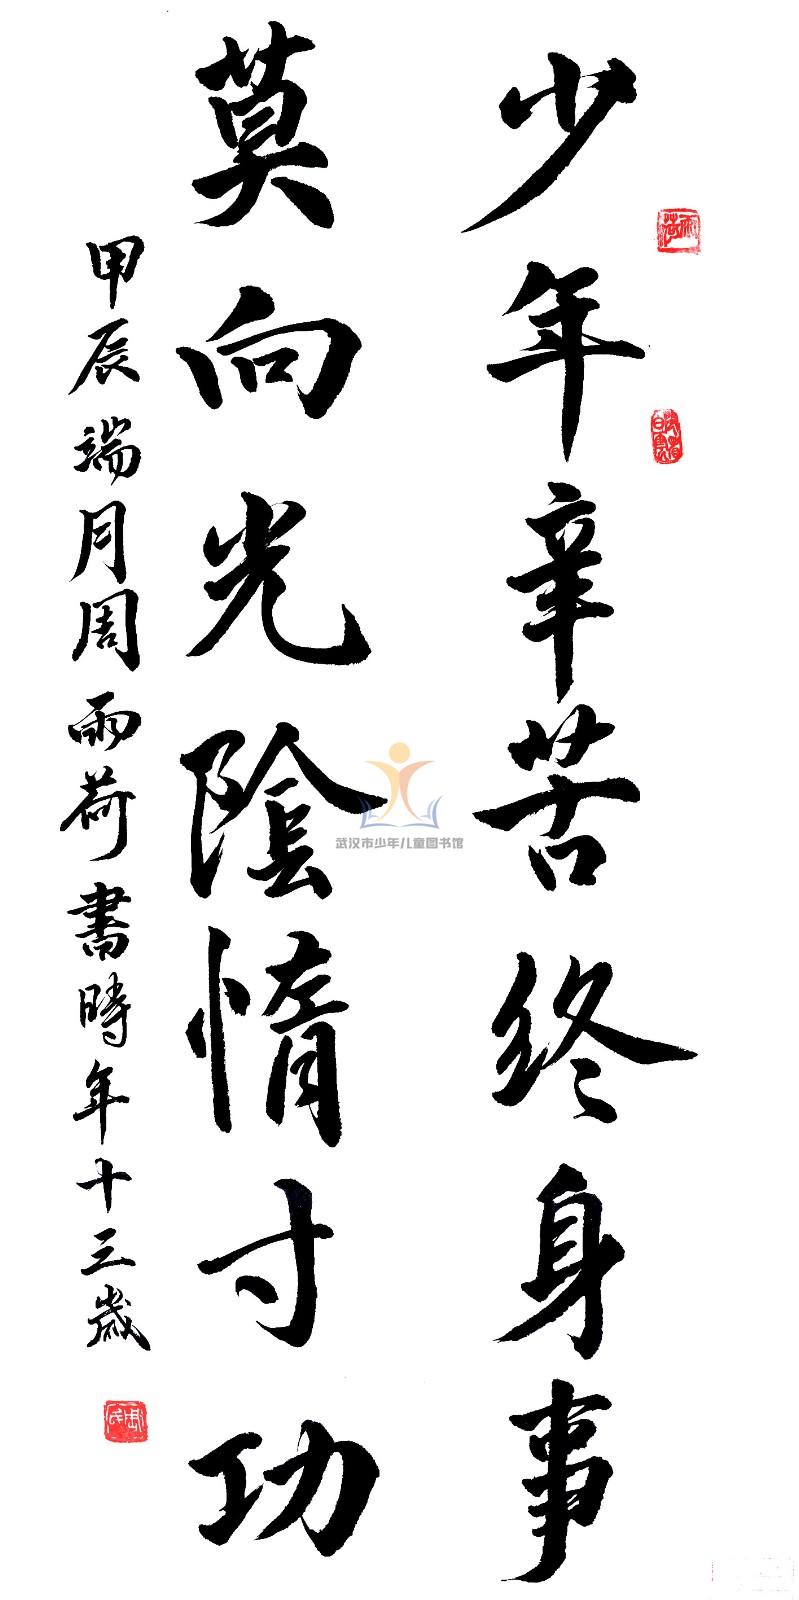 少年辛苦終身事
莫向光陰惰寸功
甲辰端月周雨荷書時年十三歲
武汉市少年儿童图书馆